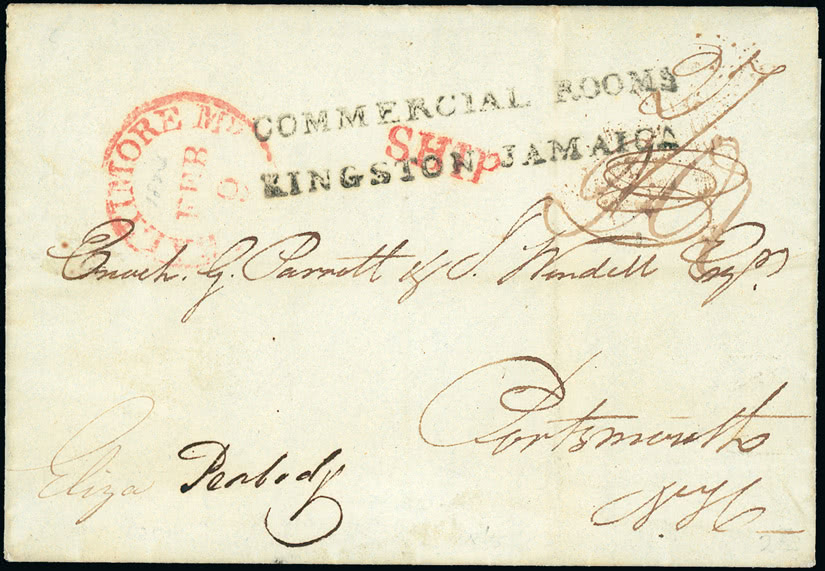 BALTIMORE MD
FEB
9
COMMERCIAL ROOMS
SHIP
KINGSTON JAMAICA
Enoch. G. Parrott & J. Wendell Esqrs
Portsmouth
N H
Eliza Peabody